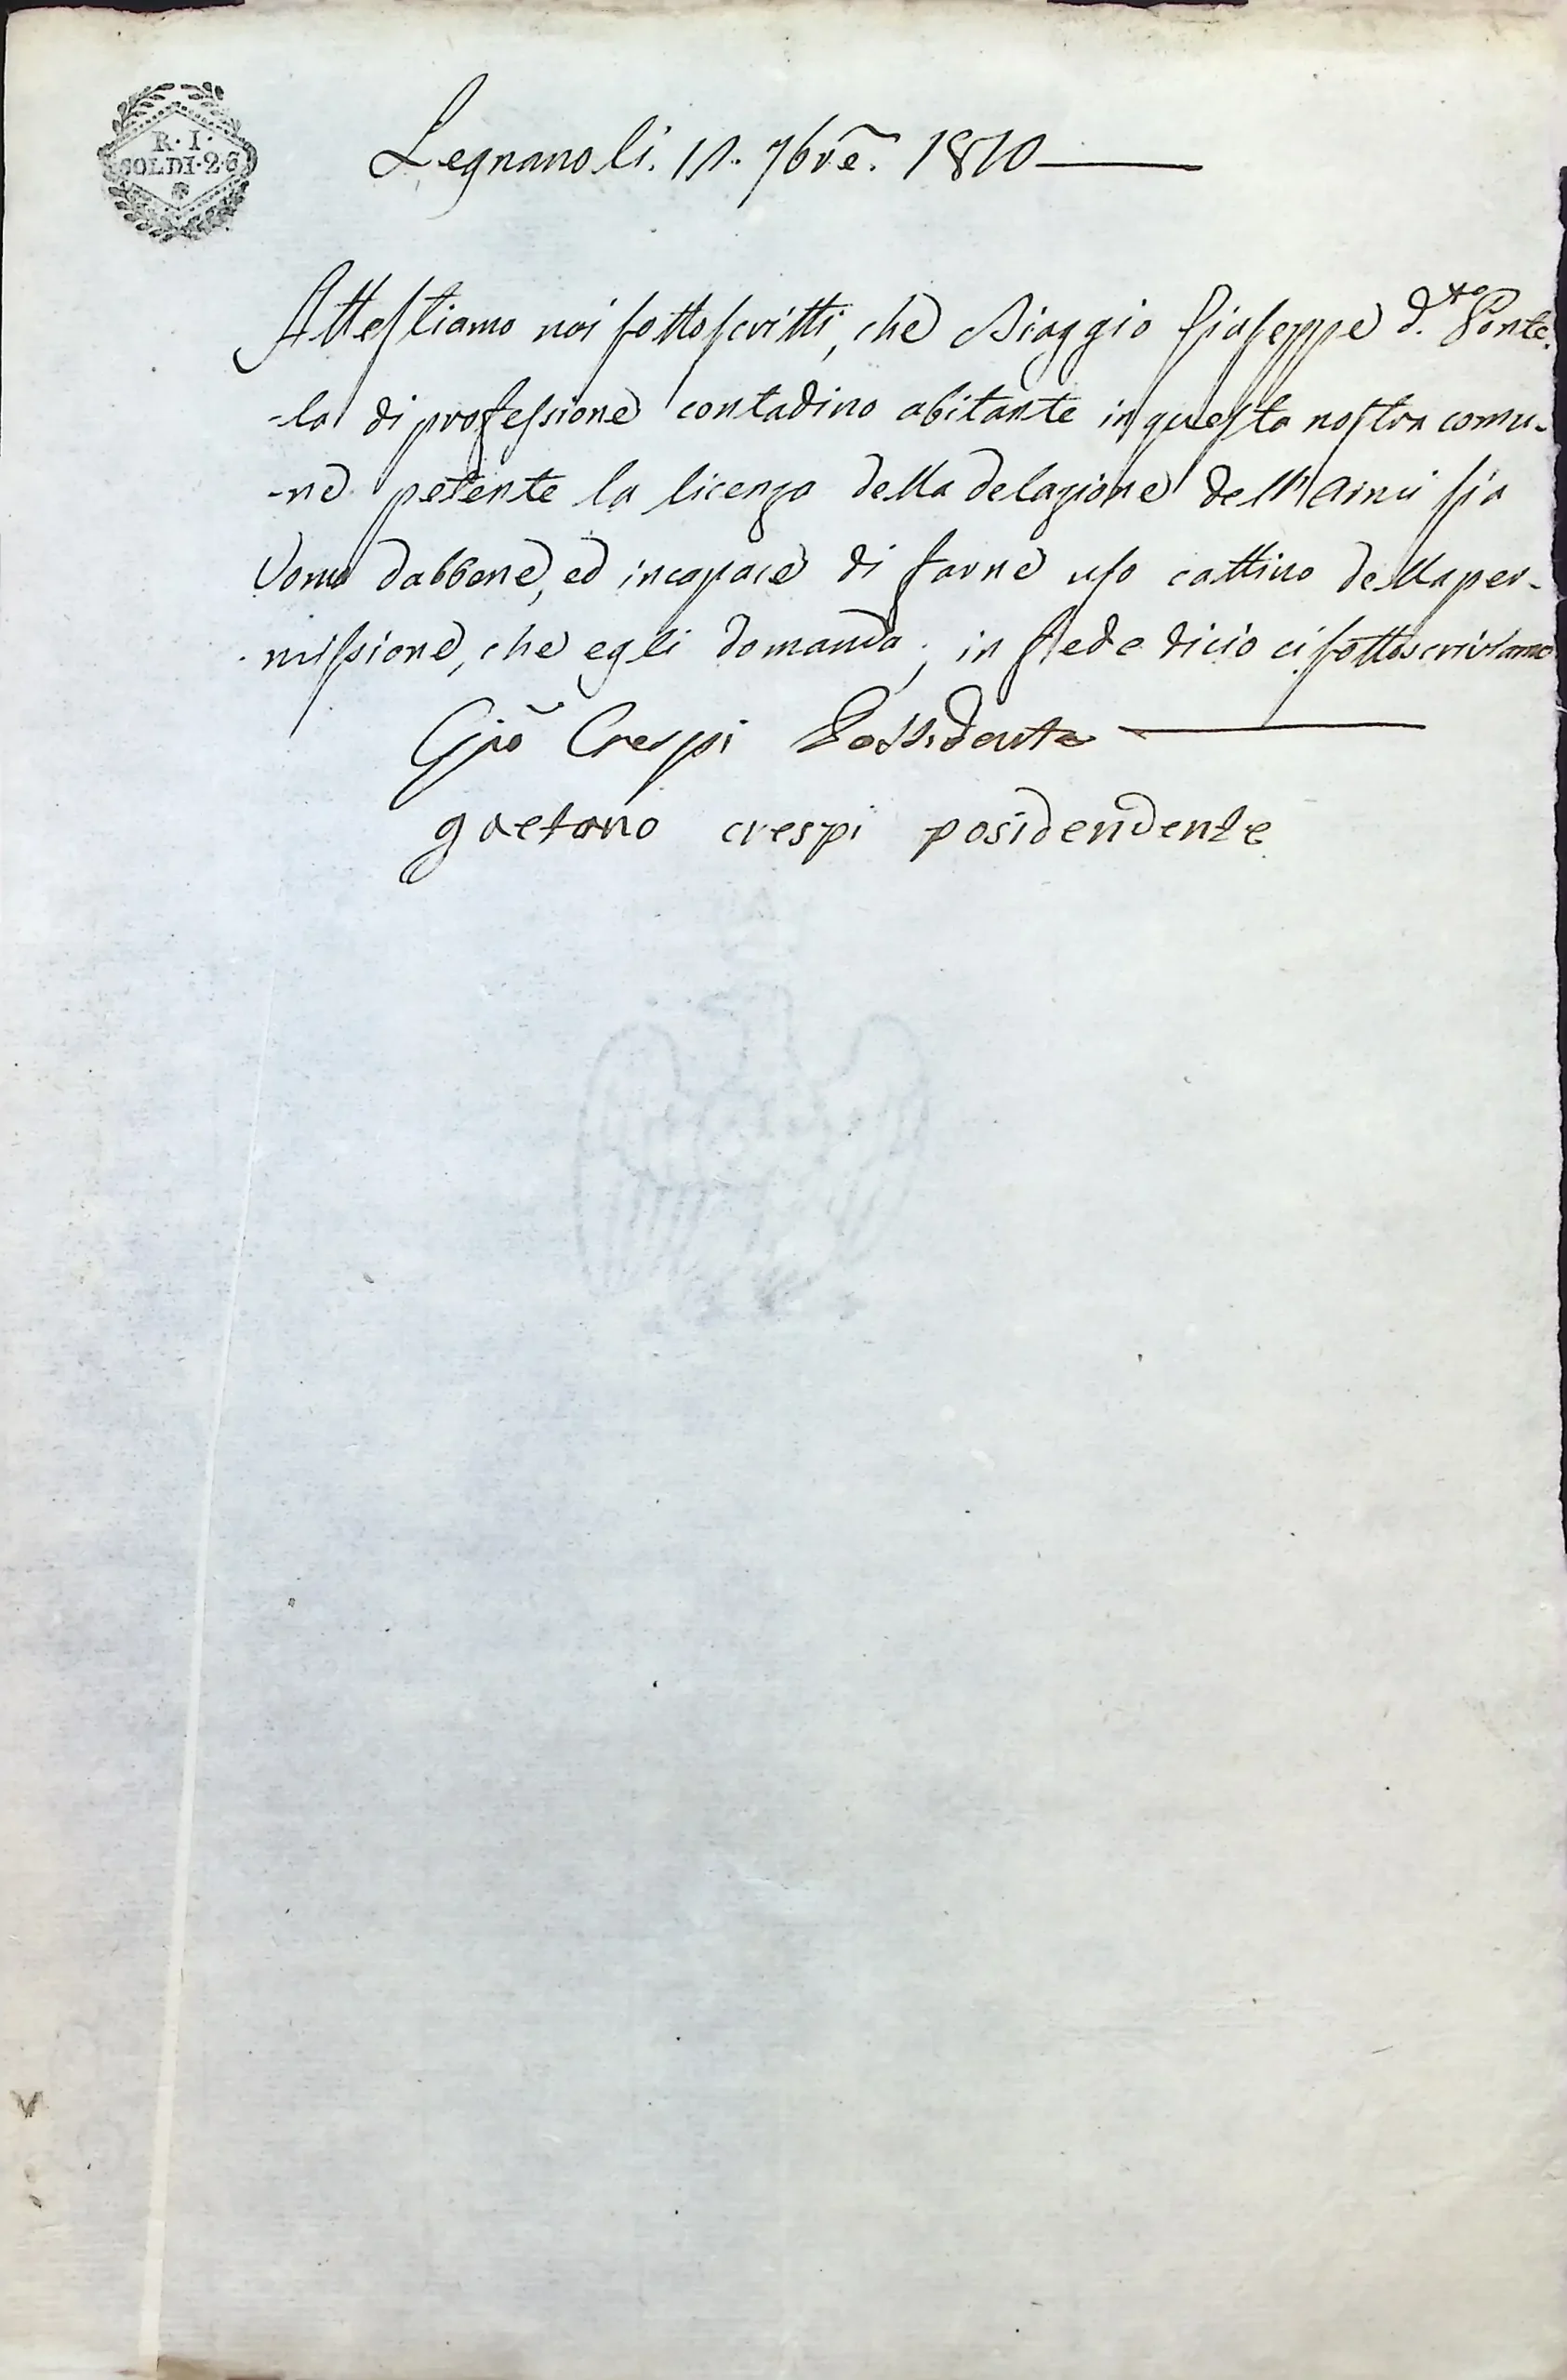 R. I.
SOLDI. 2. 6
Legnano li. 11. 7bre. 1810
Attestiamo noi sottoscritti, che Biaggio Giuseppe d.to Ponte-
-la di professione contadino abitante in questa nostra comu-
-ne petente la licenza della delazione dell'Armi sia
Uomo dabbene, ed incapace di farne uso cattivo della per-
missione, che egli domanda; in fede di cio ci sottoscriviamo
Gio Crespi Possidente
gaetano crespi posidendente